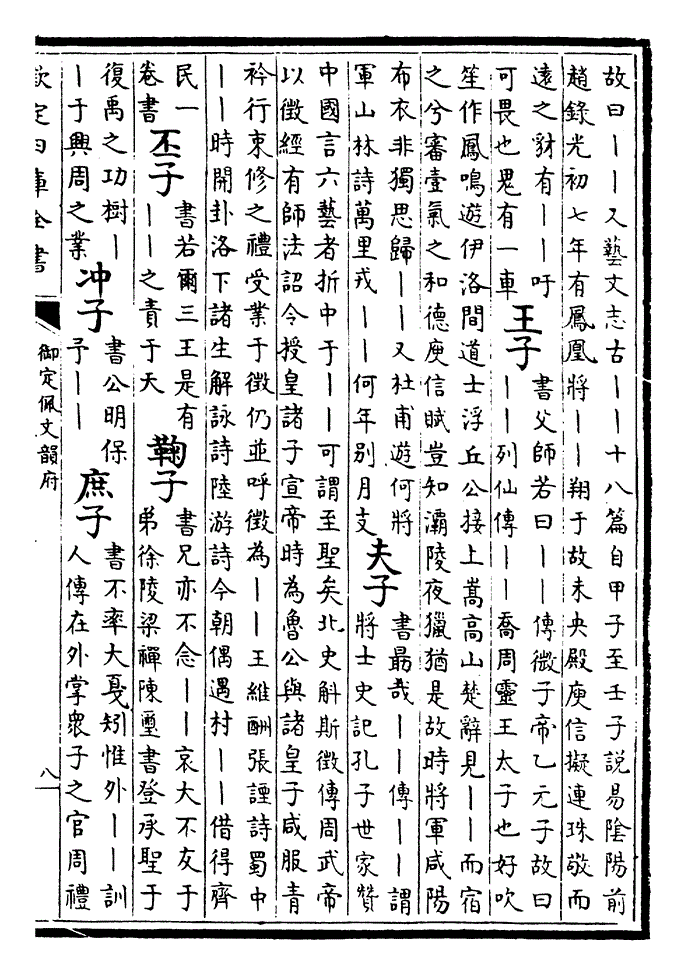 故曰丨丨又藝文志古丨丨十八篇自甲子至壬子說易陰陽前
趙錄光初七年有鳳凰將丨丨翔于故未央殿庾信擬連珠敬而
遠之豺有丨丨吁
可畏也鬼有一車
王子
書父師若曰丨丨傳微子帝乙元子故曰
丨丨列仙傳丨丨喬周靈王太子也好吹
笙作鳳鳴遊伊洛間道士浮丘公接上嵩高山楚辭見丨丨而宿
之兮審壹氣之和德庾信賦豈知灞陵夜獵猶是故時將軍咸陽
布衣非獨思歸丨丨又杜甫遊何將
軍山林詩萬里戎丨丨何年別月支
夫子
書勗哉丨丨傳丨丨謂
將士史記孔子世家贊
中國言六藝者折中于丨丨可謂至聖矣北史斛斯徵傳周武帝
以徵經有師法詔令授皇諸子宣帝時為魯公與諸皇子咸服青
衿行束修之禮受業于徵仍並呼徵為丨丨王維酬張諲詩蜀中
丨丨時開卦洛下諸生解詠詩陸游詩今朝偶遇村丨丨借得齊
民一
卷書
丕子
書若爾三王是有
丨丨之責于天
鞠子
書兄亦不念丨丨哀大不友于
弟徐陵梁禪陳璽書登承聖于
復禹之功樹丨
丨于興周之業
冲子
書公明保
予丨丨
庶子
書不率大戛矧惟外丨丨訓
人傳在外掌衆子之官周禮
欽定四庫全書
御定佩文韻府
八